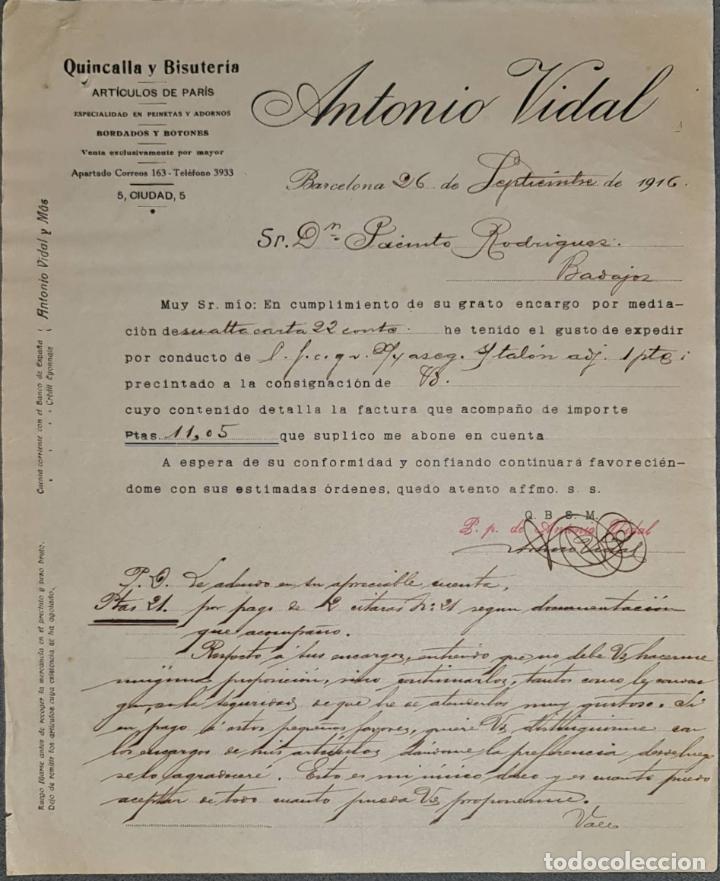 Quincalla y Bisutería
ARTÍCULOS DE PARÍS
ESPECIALIDAD EN PEINETAS Y ADORNOS
BORDADOS Y BOTONES
Venta exclusivamente por mayor
Apartado Correos 163 - Teléfono 3933
5, CIUDAD, 5
Antonio Vidal
Barcelona 26 de Septiembre de 1916.
Sr. Dn Jacinto Rodriguez.
Badajoz
Muy Sr. mío: En cumplimiento de su grato encargo por media-
ción de su atta carta 22 he tenido el gusto de expedir
por conducto de talón adj. 1
precintado a la consignación de
cuyo contenido detalla la factura que acompaño de importe
Ptas. 11,05 que suplico me abone en cuenta
A espera de su conformidad y confiando continuará favorecién-
dome con sus estimadas órdenes, quedo atento affmo. s. s.
Q. B. S. M.
P. p. de Antonio Vidal
Vidal
P.D. Le adeudo en su apreciable cuenta,
Ptas 21. por pago de 2 citaras nº 21 segun documentación
que acompaño.
Respecto á sus encargos, entiendo que no debe Vd hacerme
ninguna proposición, sino continuarlos, tantos como le
la seguridad de que he de atenderlos muy gustoso. Si
en pago á estos pequeños favores, quiere Vd distinguirme con
los encargos de mis artículos, dandome la preferencia desde luego
se lo agradeceré. Esto es mi único deseo y es cuanto puedo
aceptar de todo cuanto pueda Vd proponerme.
Vale
Cuenta corriente con el Banco de España
" " " Crédit Lyonnais
Antonio Vidal y Más
Ruego fíjarse antes de recoger la mercancía en el precinto y peso bruto.
Dejo de remitir los artículos cuya existencia se ha agotado.
todocoleccion
todocoleccion.net